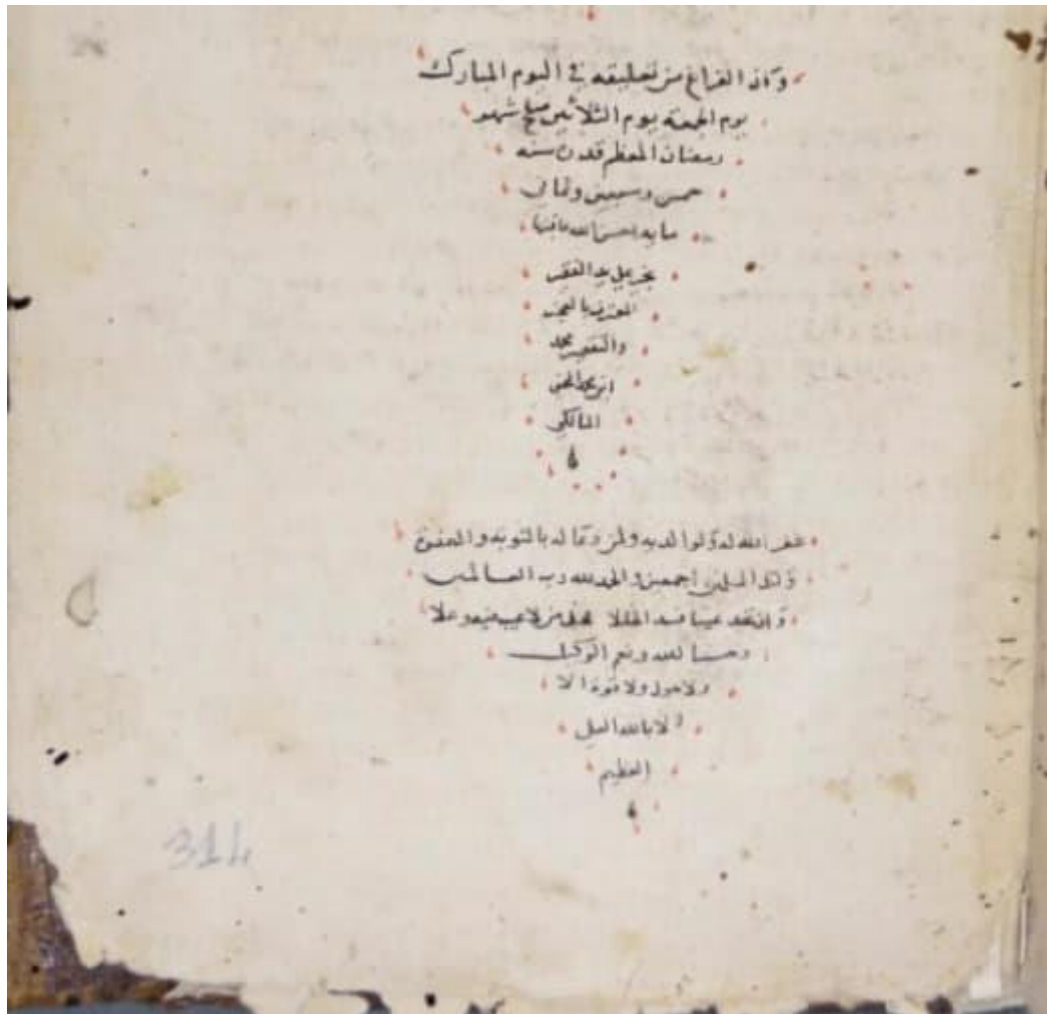 وكان الفراغ من تعليقه في اليوم المبارك
يوم الجمعة يوم الثلاثين شهر
رمضان المعظم قدره سنه
خمس وسبعين وثمان
مايه احسن الله عاقبتها
بخير علي يد الفقير
المعترف بالعجز
والتقصير محمد
ابن محمد
المالكي
غفر الله له ولوالديه ولمن دعا له بالتوبه والمغفرة
ولكل المسلمين أجمعين والحمد لله رب العالمين
وان تجد عيبا فسد الخللا فجل من لا عيب فيه وعلا
وحسبنا الله ونعم الوكيل
ولا حول ولا قوة الا
الا بالله العلي
العظيم
314